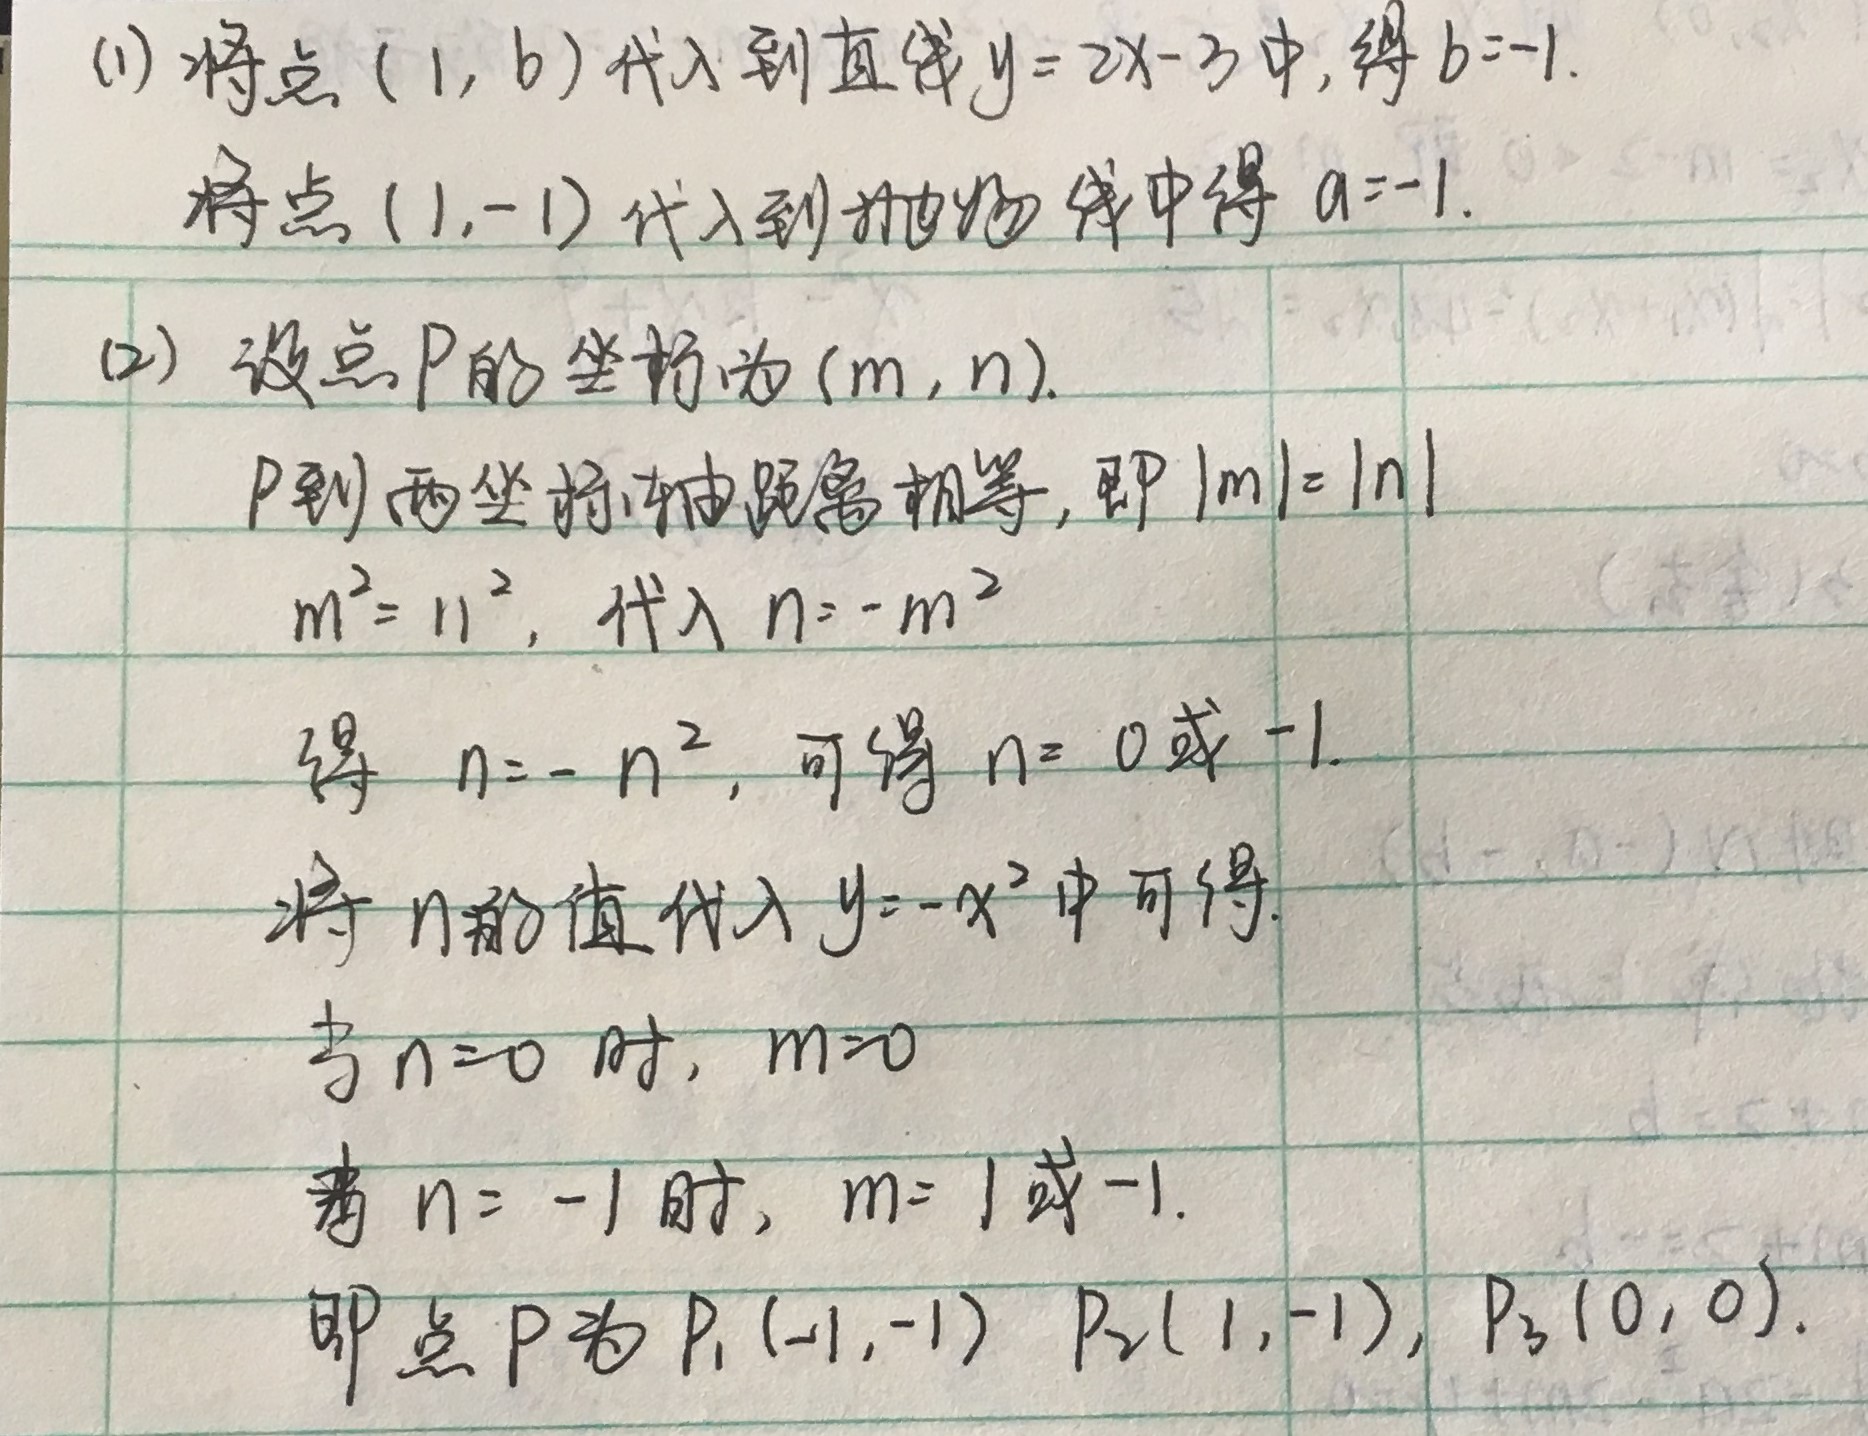 (1) 将点(1,b)代入到直线y=2x-3中,得b=-1.
将点(1,-1)代入到抛物线中得 a=-1.
(2) 设点P的坐标为(m,n).
P到两坐标轴距离相等,即|m|=|n|
m²=n², 代入 n=-m²
得 n=-n², 可得 n= 0或 -1.
将n的值代入y=-x²中可得.
当n=0时, m=0
当 n= -1时, m= 1或-1.
即点P为P₁(-1,-1) P₂(1,-1), P₃(0,0).